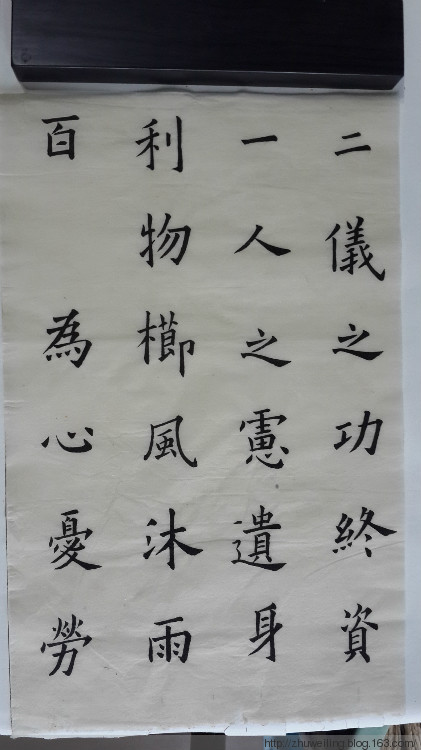 二儀之功終資
一人之慮遺身
利物櫛風沐雨
百為心憂勞
http://zhuweiling.blog.163.com